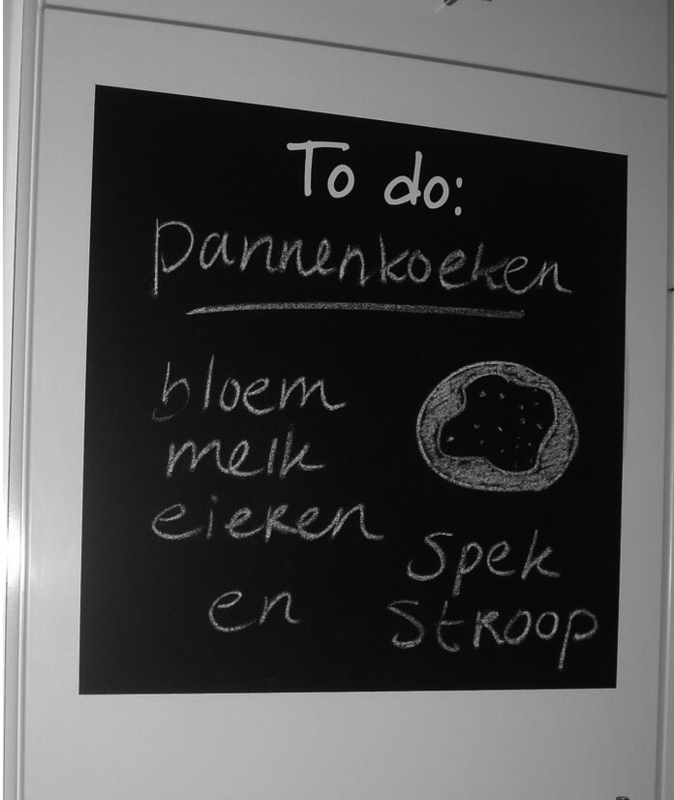 To do:
pannenkoeken
bloem
melk
eieren
en
spek
stroop